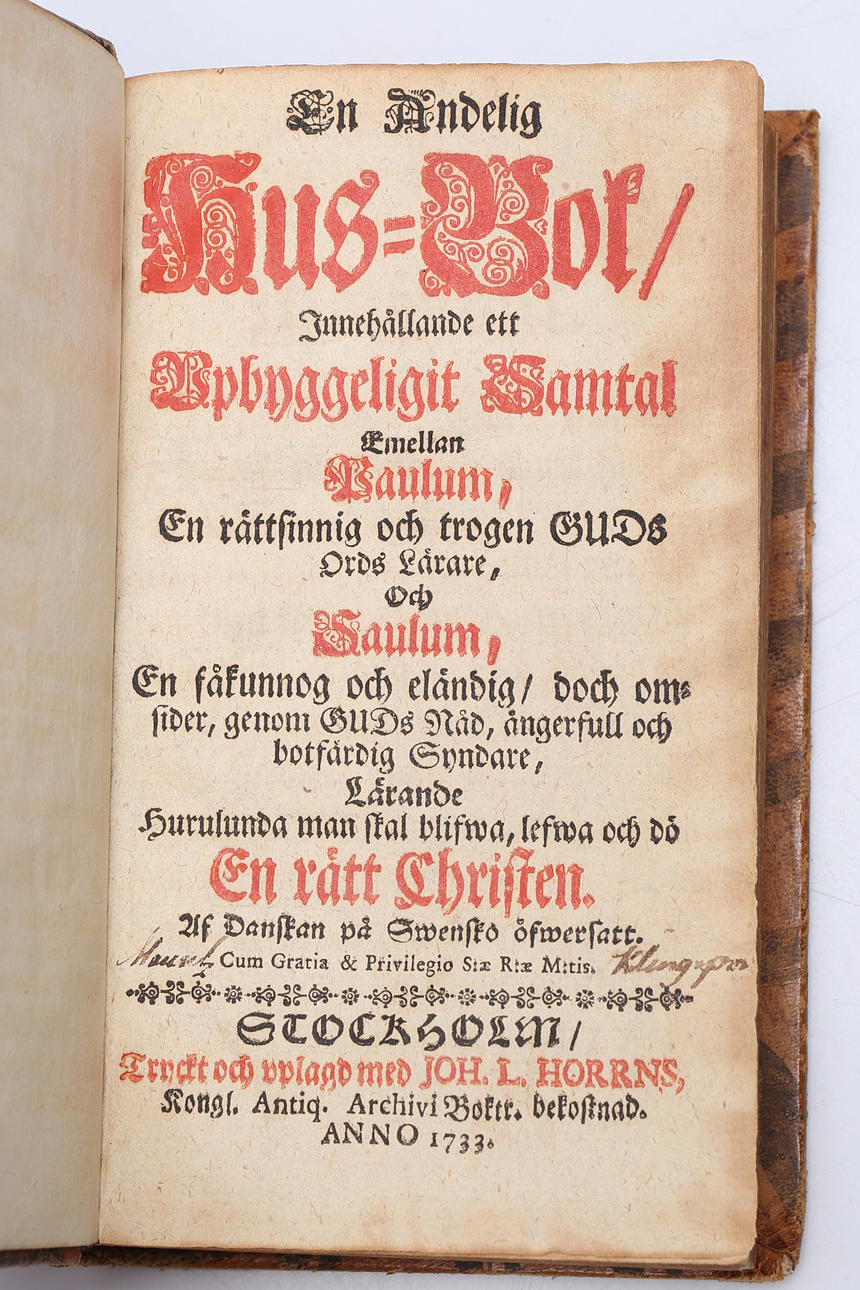 En Andelig
Hus=Bok/
Innehållande ett
Vpbyggeligit Samtal
Emellan
Paulum,
En rättsinnig och trogen GUDs
Ords Lärare,
Och
Saulum,
En fåkunnog och eländig/ doch om=
sider, genom GUDs Nåd, ångerfull och
botfärdig Syndare,
Lärande
Hurulunda man skal blifwa, lefwa och dö
En rätt Christen.
Af Danskan på Swensko öfwersatt.
Cum Gratia & Privilegio S:æ R:æ M:tis.
STOCKHOLM/
Tryckt och vplagd med JOH. L. HORRNS,
Kongl. Antiq. Archivi Boktr. bekostnad.
ANNO 1733.